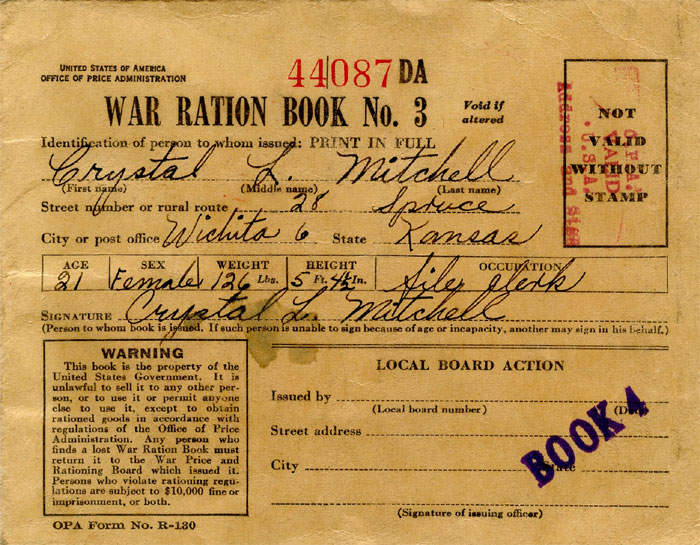 UNITED STATES OF AMERICA
OFFICE OF PRICE ADMINISTRATION
44087 DA
WAR RATION BOOK No. 3
Void if
altered
NOT
VALID
WITHOUT
STAMP
O.P.A.
VALID
U.S.A.
Address and Sign
Identification of person to whom issued: PRINT IN FULL
Crystal L. Mitchell
(First name) (Middle name) (Last name)
Street number or rural route 28 Spruce
City or post office Wichita 6 State Kansas
AGE SEX WEIGHT HEIGHT OCCUPATION
21 Female 126 Lbs. 5 Ft. 4½ In. file clerk
SIGNATURE Crystal L. Mitchell
(Person to whom book is issued. If such person is unable to sign because of age or incapacity, another may sign in his behalf.)
WARNING
This book is the property of the
United States Government. It is
unlawful to sell it to any other per-
son, or to use it or permit anyone
else to use it, except to obtain
rationed goods in accordance with
regulations of the Office of Price
Administration. Any person who
finds a lost War Ration Book must
return it to the War Price and
Rationing Board which issued it.
Persons who violate rationing regu-
lations are subject to $10,000 fine or
imprisonment, or both.
OPA Form No. R-130
LOCAL BOARD ACTION
Issued by
(Local board number) (Date)
Street address
City State
(Signature of issuing officer)
BOOK 4